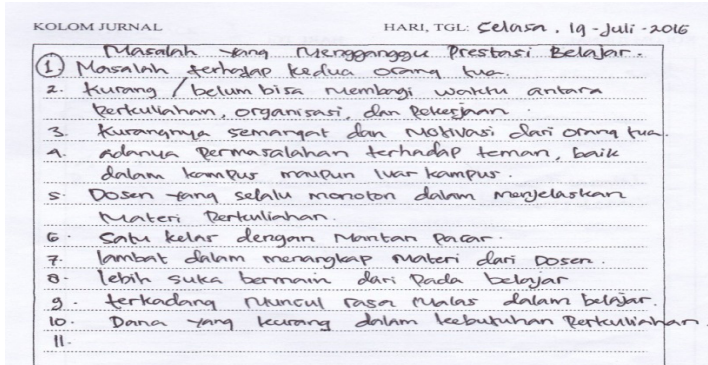 KOLOM JURNAL HARI, TGL: Selasa, 19-Juli-2016
Masalah yang Mengganggu Prestasi Belajar.
1 Masalah terhadap kedua orang tua.
2. Kurang / belum bisa membagi waktu antara
Perkuliahan, organisasi, dan Pekerjaan.
3. Kurangnya semangat dan Motivasi dari orang tua.
4. adanya Permasalahan terhadap teman, baik
dalam kampus maupun luar kampus.
5. Dosen yang selalu monoton dalam menjelaskan
Materi Perkuliahan.
6. Satu kelas dengan Mantan Pacar.
7. lambat dalam menangkap Materi dari Dosen.
8. lebih suka bermain dari Pada belajar
9. terkadang Muncul rasa Malas dalam belajar.
10. Dana yang kurang dalam kebutuhan Perkuliahan.
11.